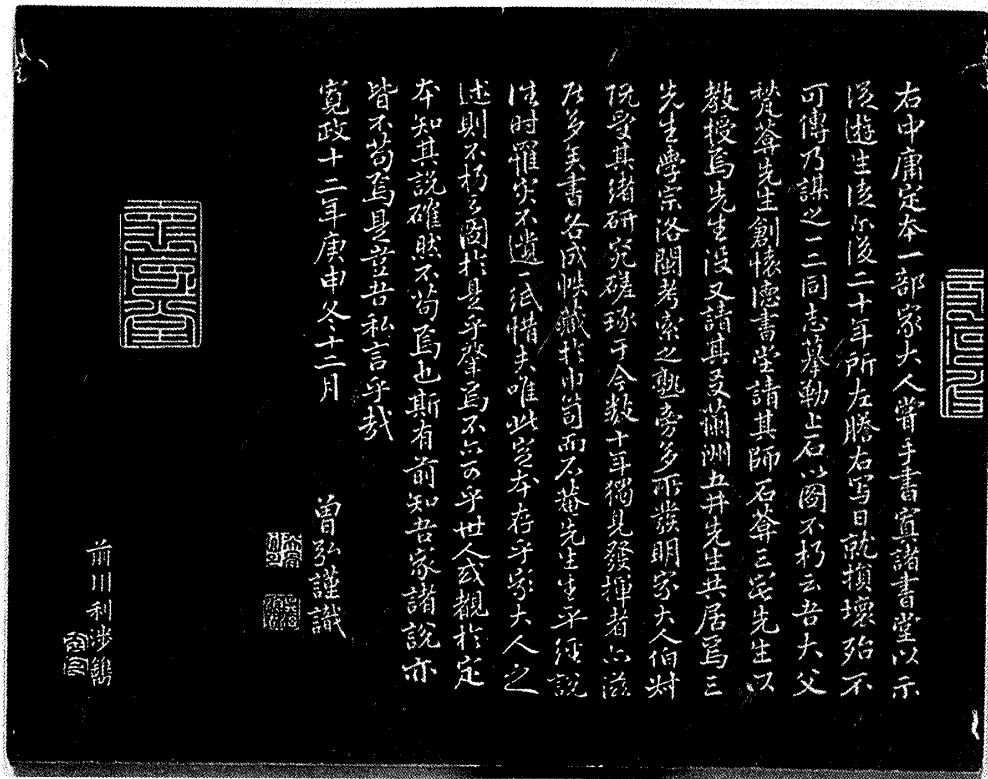 右中庸定本一部家大人嘗手書寘諸書堂以示
從遊生徒尓後二十年所左謄右写日就損壞殆不
可傳乃謀之二三同志摹勒上石以圖不朽云吾大父
甃菴先生創懷德書堂請其師石菴三宅先生以
教授焉先生沒又請其友蘭洲五井先生共居焉三
先生學宗洛閩考索之勤旁多所發明家大人伯叔
既受其緒研究磋琢于今数十年獨見發揮者亦滋
居多矣書各成帙藏於巾笥而石菴先生生平経説
往時罹災不遺一紙惜夫唯此定本存乎家大人之
述則不朽之圖於是乎肇焉不亦可乎世人或觀於定
本知其説確然不苟焉也斯有前知吾家諸説亦
皆不苟焉是豈吾私言乎哉
寛政十二年庚申冬十二月
曽弘謹識
前川利渉鐫